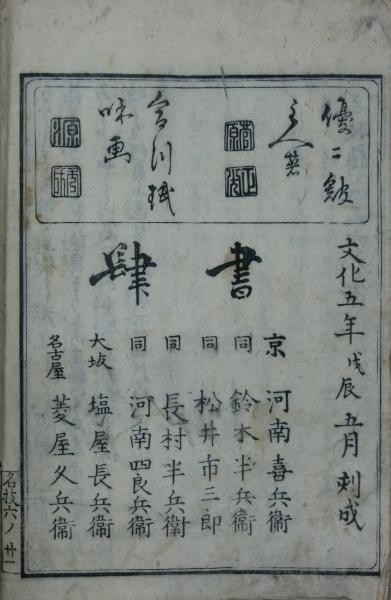 優〻館
主人著
合川珉
和画
文化五年戊辰五月刻成
書肆
京 河南喜兵衛
同 鈴木半兵衛
同 松井市三郎
同 長村半兵衛
同 河南四良兵衛
大坂 塩屋長兵衛
名古屋 菱屋久兵衛
名技六ノ廿一